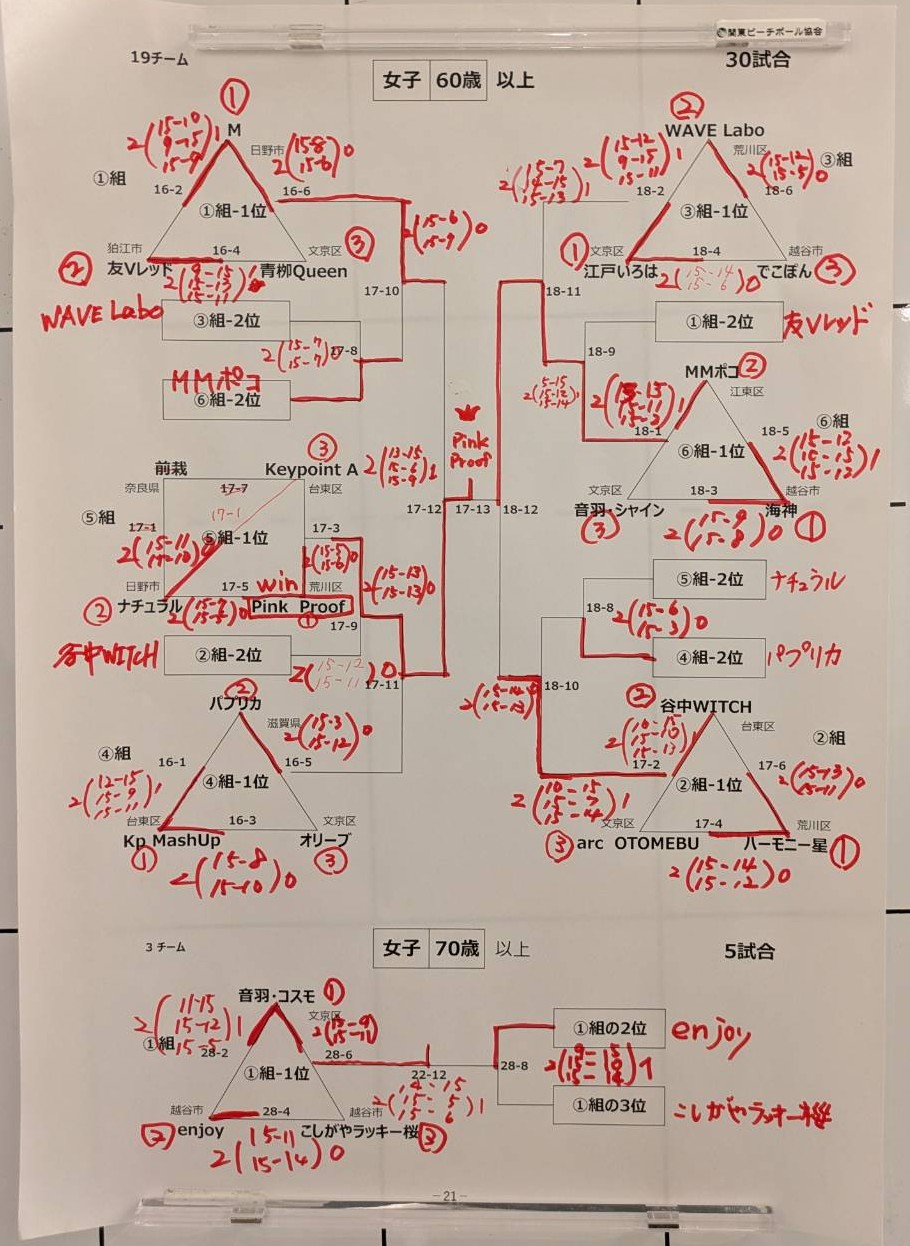 関東ビーチボール協会
19チーム
女子 60歳 以上
30試合
①
M
日野市
2(15-10 9-15 15-9)1
2(15-8 15-6)0
①組
16-2
16-6
①組-1位
狛江市
16-4
文京区
③
②
友Vレッド
青柳Queen
2(9-15 15-13 15-11)1
WAVE Labo
③組-2位
17-10
2(15-6 15-9)0
2(15-7 15-7)0
17-8
MMポコ
⑥組-2位
②
WAVE Labo
荒川区
③組
2(15-7 14-15 15-13)1
2(15-12 9-15 15-11)1
2(15-12 15-5)0
18-2
18-6
③組-1位
①
文京区
18-4
越谷市
江戸いろは
でこぽん
③
2(15-14 15-6)0
18-11
①組-2位
友Vレッド
18-9
2(5-15 15-12 15-14)1
MMポコ
②
江東区
⑥組
18-1
18-5
2(15-12 15-12)1
⑥組-1位
文京区
18-3
越谷市
音羽・シャイン
海神
③
①
2(15-9 15-8)0
前栽
③
Keypoint A
奈良県
17-7
台東区
⑤組
17-1
17-1
17-3
⑤組-1位
2(15-11)0
2(15-5 15-6)0
日野市
17-5
win
荒川区
②
ナチュラル
Pink Proof
①
2(13-15 15-6 15-9)1
Pink Proof
17-12
17-13
18-12
2(15-13 15-13)0
谷中WITCH
②組-2位
17-9
2(15-12 15-11)0
17-11
⑤組-2位
ナチュラル
18-8
2(15-6 15-3)0
④組-2位
パプリカ
18-10
2(15-14 15-13)0
②
パプリカ
滋賀県
④組
16-1
16-5
2(15-3 15-12)0
2(12-15 15-9 15-11)1
④組-1位
台東区
16-3
文京区
Kp MashUp
オリーブ
①
③
2(15-8 15-10)0
②
谷中WITCH
台東区
②組
2(10-15 15-10 15-13)1
17-2
17-6
2(15-13 15-11)0
②組-1位
2(10-15 15-7 15-14)1
文京区
17-4
荒川区
③
arc OTOMEBU
ハーモニー星
①
2(15-14 15-12)0
3チーム
女子 70歳 以上
5試合
音羽・コスモ
①
文京区
2(11-15 15-12 15-5)1
①組
28-2
28-6
①組-1位
①組の2位
enjoy
22-12
28-8
①組の3位
こしがやラッキー桜
越谷市
28-4
越谷市
②
enjoy
こしがやラッキー桜
③
2(14-15 15-5 15-6)1
2(15-11 15-14)0
-21-